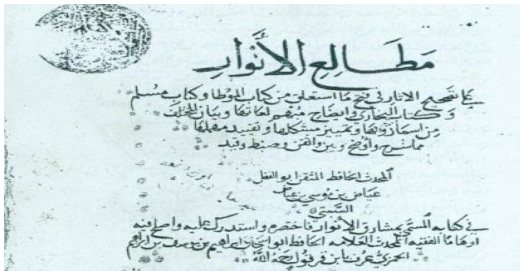 مطالع الأنوار
على صحيح الآثار في فتح ما استغلق من كتاب الموطا وكتاب مسلم
وكتاب البخاري وايضاح مبهم لغاتها وبيان المختلف
من اسماء رواتها وتمييز مشكلها وتقييد مهملها
مما شرح واوضح وبين واتقن وضبط وقيد
المحدث الحافظ المتقن ابو الفضل
عياض بن موسى بن عياض
السبتي
في كتابه المسمى بمشارق الأنوار فاختصره واستدرك عليه واصلح فيه
اوهاما الفقيه المحدث العلامة الحافظ ابو اسحاق ابراهيم بن يوسف بن ابراهيم
الحمزي عرف بابن قرقول رحمه الله